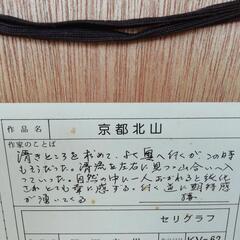 作品名 京都北山
作家のことば
清きところを求めて、よく奥へ行くがこの時
もそうだった。清流を左右に見つつ山合いへ入
っていった。自然の中に一人おかれると純化
されとても幸に感ずる。行く道に期待感
が湧いてくる
セリグラフ